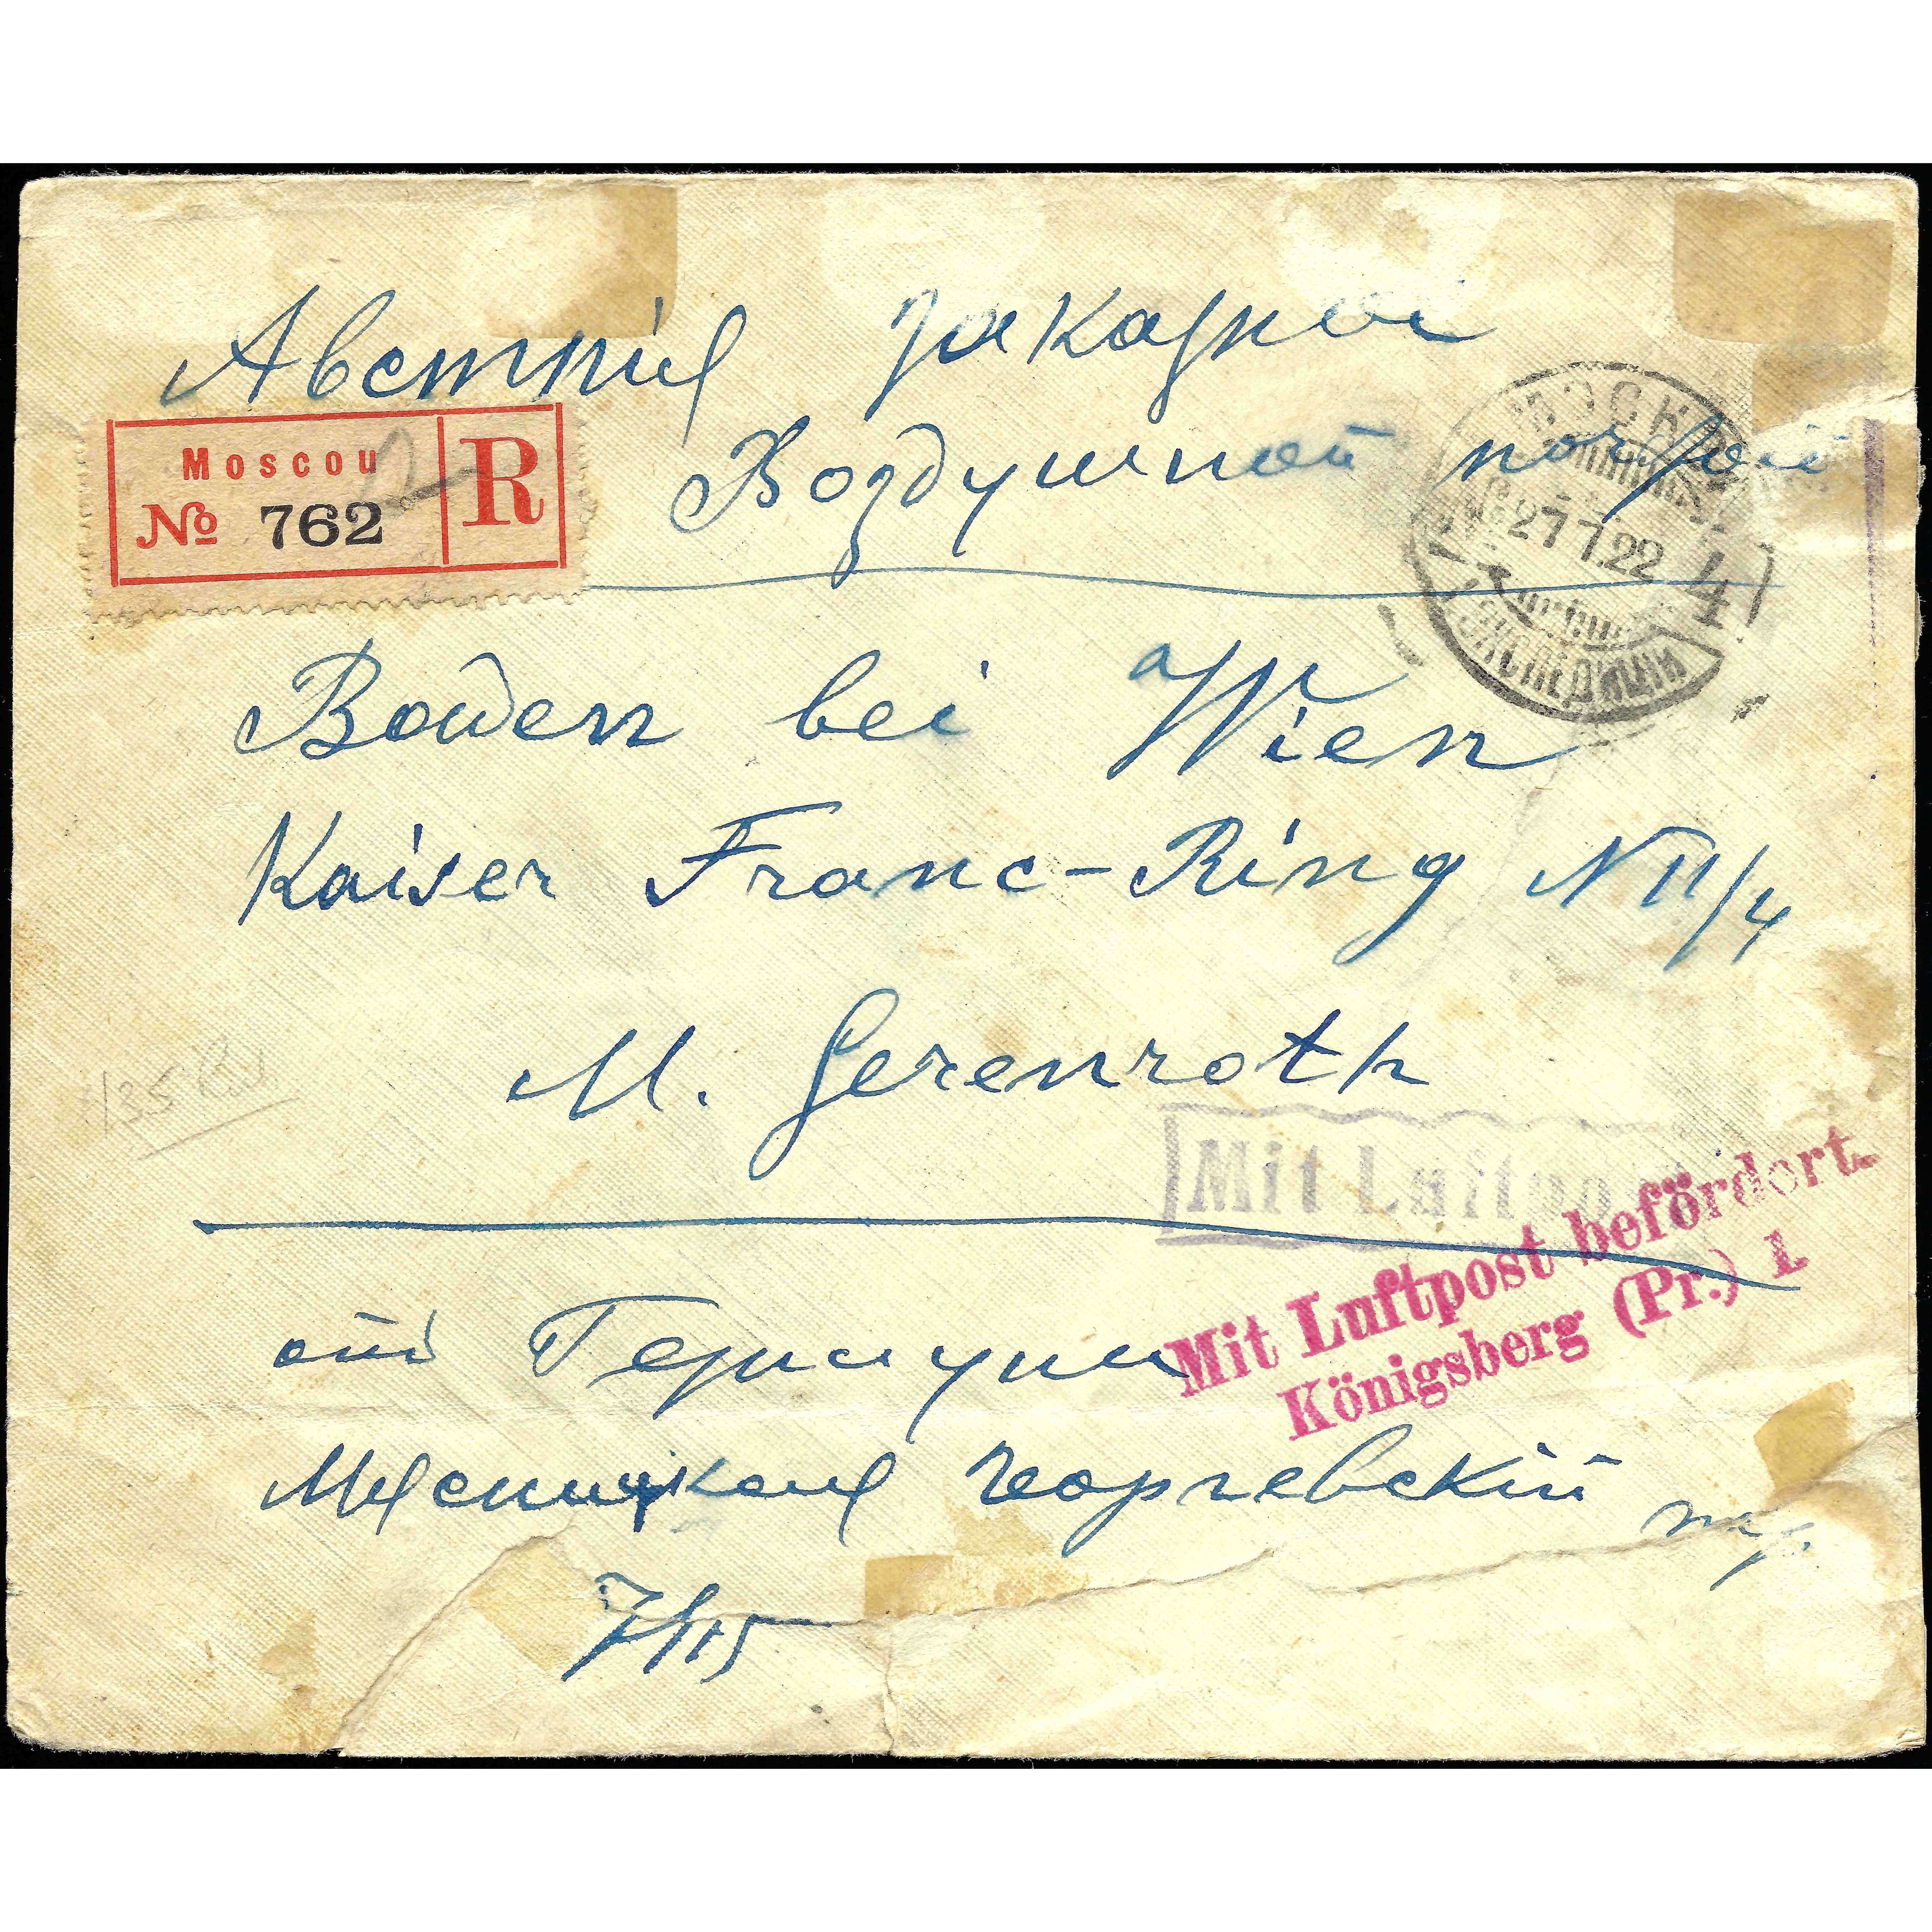 Австрія Заказное
Воздушной почтой
Moscou
R
№ 762
МОСКВА
27 7.22
4
ЭКСПЕДИЦІЯ
Baden bei Wien
Kaiser Franc-Ring N 11/4
M. Gerenroth
Mit Luftpo
Mit Luftpost befördert
Königsberg (Pr.) 1
135
Мясницкая Георгевский пер.
7/15